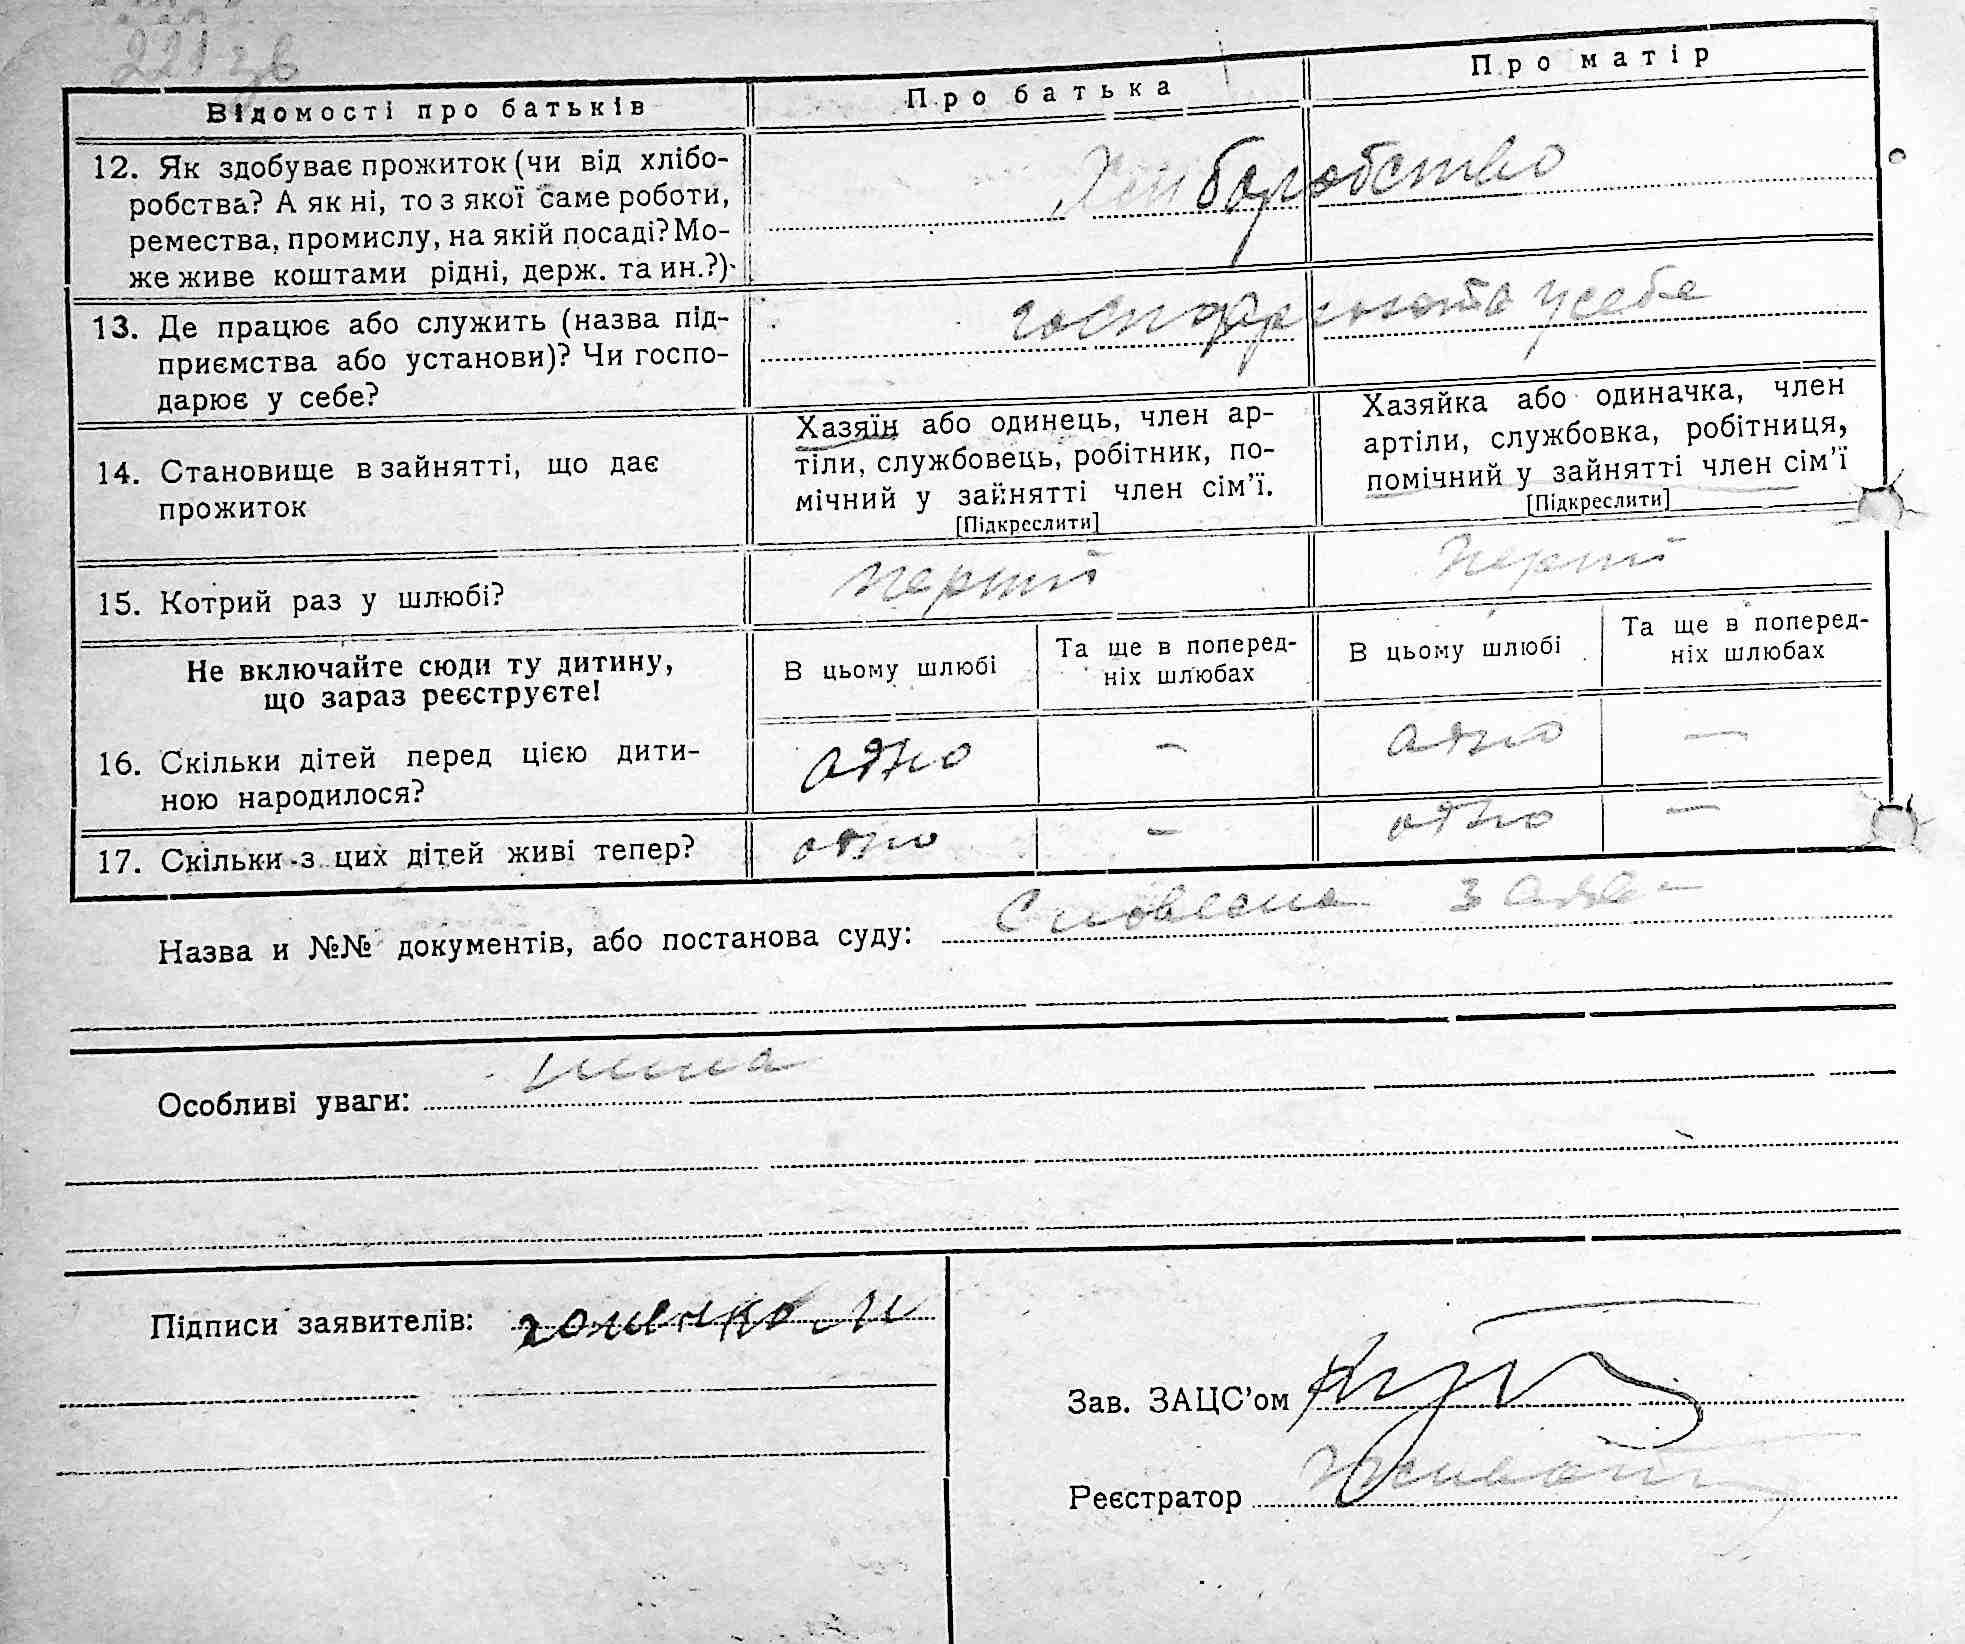 221 зв
Відомості про батьків
Про батька
Про матір
12. Як здобуває прожиток (чи від хлібо-
робства? А як ні, то з якої саме роботи,
ремества, промислу, на якій посаді? Мо-
же живе коштами рідні, держ. та ин.?)
Хліборобство
13. Де працює або служить (назва під-
приємства або установи)? Чи госпо-
дарює у себе?
господарюють у себе
14. Становище в зайнятті, що дає
прожиток
Хазяїн або одинець, член ар-
тіли, службовець, робітник, по-
мічний у зайнятті член сім'ї.
[Підкреслити]
Хазяйка або одиначка, член
артіли, службовка, робітниця,
помічний у зайнятті член сім'ї
[Підкреслити]
15. Котрий раз у шлюбі?
перший
перший
Не включайте сюди ту дитину,
що зараз реєструєте!
В цьому шлюбі
Та ще в поперед-
ніх шлюбах
В цьому шлюбі
Та ще в поперед-
ніх шлюбах
16. Скільки дітей перед цією дити-
ною народилося?
одно
—
одно
—
17. Скільки з цих дітей живі тепер?
одно
—
одно
—
Назва и №№ документів, або постанова суду: Словесна заява
Особливі уваги:
Підписи заявителів:
Зав. ЗАЦС'ом
Реєстратор